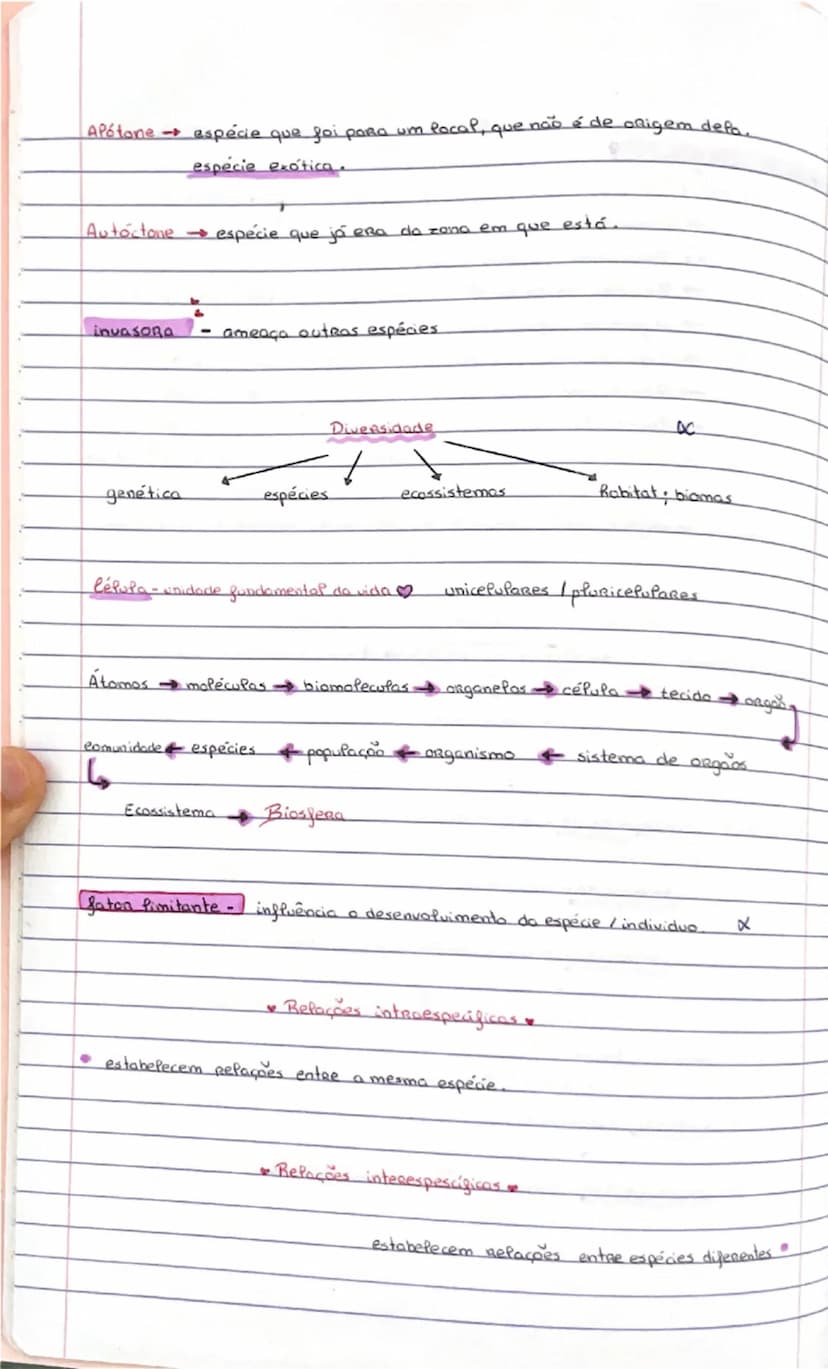 Alótone → espécie que foi para um local, que não é de origem dela.
espécie exótica.
Autóctone → espécie que já era da zona em que está.
invasora - ameaça outras espécies
Diversidade
genética espécies ecossistemas habitat; biomas
Célula - unidade fundamental da vida ♥ unicelulares / pluricelulares
Átomos → moléculas → biomoleculas → organelos → célula → tecido → orgão
comunidade ← espécies ← população ← organismo ← sistema de orgãos
↳
Ecossistema → Biosfera
fator limitante - influência o desenvolvimento da espécie / individuo.
♥ Relações intraespecíficas ♥
• estabelecem relações entre a mesma espécie.
♥ Relações interespescíficas ♥
estabelecem relações entre espécies diferentes •